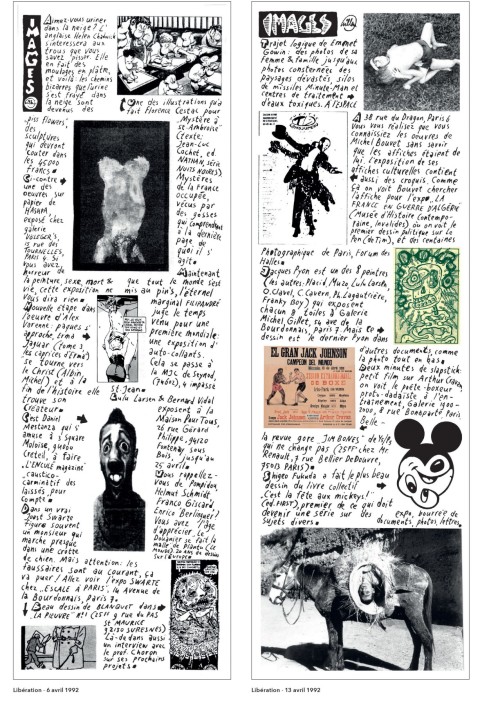 IMAGES
Aimez-vous uriner
dans la neige? L'
anglaise Helen Chadwick
s'intéressera aux
trous que vous
savez "pisser". Elle
en fait des
moulages en plâtre,
et voilà les chemins
bizarres que l'urine
s'est frayé dans
la neige sont
devenus des
"piss flowers",
des
sculptures
qui devront
coûter dans
les 45000
francs.
Ci-contre
une des
oeuvres sur
papier de
exposé chez
galerie
13 rue des
TOURNELLES,
PARIS 4. Si
vous avez
horreur de
la peinture, sexe, mort &
vie, cette exposition ne
vous dira rien.
Nouvelle étape dans
l'oeuvre d'Alex
Varenne: pâques s'
approche, Erma
Jaguar (tome 3,
les caprices d'Erma)
se tourne vers
le Christ (Albin
Michel) et à la
fin de l'histoire elle
trouve son
Créateur.
C'est Daniel
Mestanza qui s'
amuse à 5 square
Moloise, 94000
Créteil, à faire
"L'ENCULÉ magazine
caustico-
carminatif des
laissés pour
compte.
Dans un vrai
Joost Swarte
figure souvent
un monsieur qui
marche presque
dans une crotte
de chien. Mais attention: les
faussaires sont au courant, ça
va puer! Allez voir l'expo SWARTE
chez "ESCALE À PARIS", 14 Avenue de
la Bourdonnais, Paris 7.
Beau dessin de BLANQUET dans
"LA PIEUVRE" N°1 (25ff 9 rue du PAS
ST MAURICE
92150 SURESNES)
Là-dedans aussi
un interview avec
le prof. Choron
sur ses prochains
projets.
Une des illustrations qu'a
fait Florence Cestac pour
"Mystère à
St Ambroise"
(texte:
Jean-Luc
Cochet, éd.
NATHAN, série
NUITS NOIRES)
Mystères
de la France
occupée,
vécus par
des gosses
qui comprendront
à la dernière
page de
quoi il s'
agit.
Maintenant
que tout le monde s'est
mis au pin's, l'éternel
marginal FILIGRANOWÉ
juge le temps
venu pour une
première mondiale:
une exposition d'
auto-collants.
Cela se passe à
la MJC de Seynod
(74602), 4 impasse
St-Jean.
Lulu Larsen & Bernard Vidal
exposent à la
Maison Pour Tous,
26 rue Gérard
Philippe, 94120
Fontenay sous
Bois, jusqu'au
25 avril.
Vous rappellez-
vous de Pompidou,
Helmut Schmidt,
Franco, Giscard,
Enrico Berlinguer?
Vous avez l'âge
d'apprécier "Le
Douanier se fait la
malle" de Plantu (Le
Monde): 20 ans de dessins
sur l'Europe.
Libération - 6 avril 1992
IMAGES
Trajet logique de Emmet
Gowin: des photos de sa
femme & famille jusqu'aux
photos consternées des
paysages dévastés silos
de missiles Minute-Man et
centres de traitement
d'eaux toxiques. A l'ESPACE
Photographique de Paris, Forum des
Halles.
A 38 rue du Dragon, Paris 6
vous vous réalisez que vous
connaissiez les oeuvres de
Michel Bouvet sans savoir
que les affiches étaient de
lui. L'exposition de ses
affiches culturelles contient
aussi des croquis. Comme
ça on voit Bouvet chercher
l'affiche pour l'expo "LA
FRANCE en GUERRE D'ALGÉRIE"
(Musée d'Histoire contempo-
raine, Invalides) où on voit le
premier dessin politique sur le
(de Tim), et des centaines
d'autres documents, comme
la photo tout en bas.
Jacques Pyon est un des 8 peintres
(les autres: Nacir, Muzo, Lulu Larsen,
O. Clavel, C. Cavern, M. Lagautrière,
Franky Boy) qui exposent
chacun 8 toiles à Galerie
Michel Gillet, 54 ave de la
Bourdonnais, Paris 7. Mais ce
dessin est le dernier Pyon dans
la revue gore "JIM BONES" de
qui ne change pas (25ff chez Mr
Renault, 7 rue Bellier Dedouvre,
75013 PARIS).
EL GRAN JACK JOHNSON
CAMPEON DEL MUNDO
BOXEO
Deux minutes de slapstick:
petit film sur Arthur Cravan
on voit le poète-boxeur
proto-dadaïste à l'en-
traînement, Galerie 1900-
2000, 8 rue Bonaparte Paris
Belle
expo, bourrée de
documents, photos, lettres.
Shigeo Fukuda a fait le plus beau
dessin du livre collectif
"C'est la fête aux mickeys!"
(éd. FIRST), premier de ce qui doit
devenir une série sur des
sujets divers.
Libération - 13 avril 1992